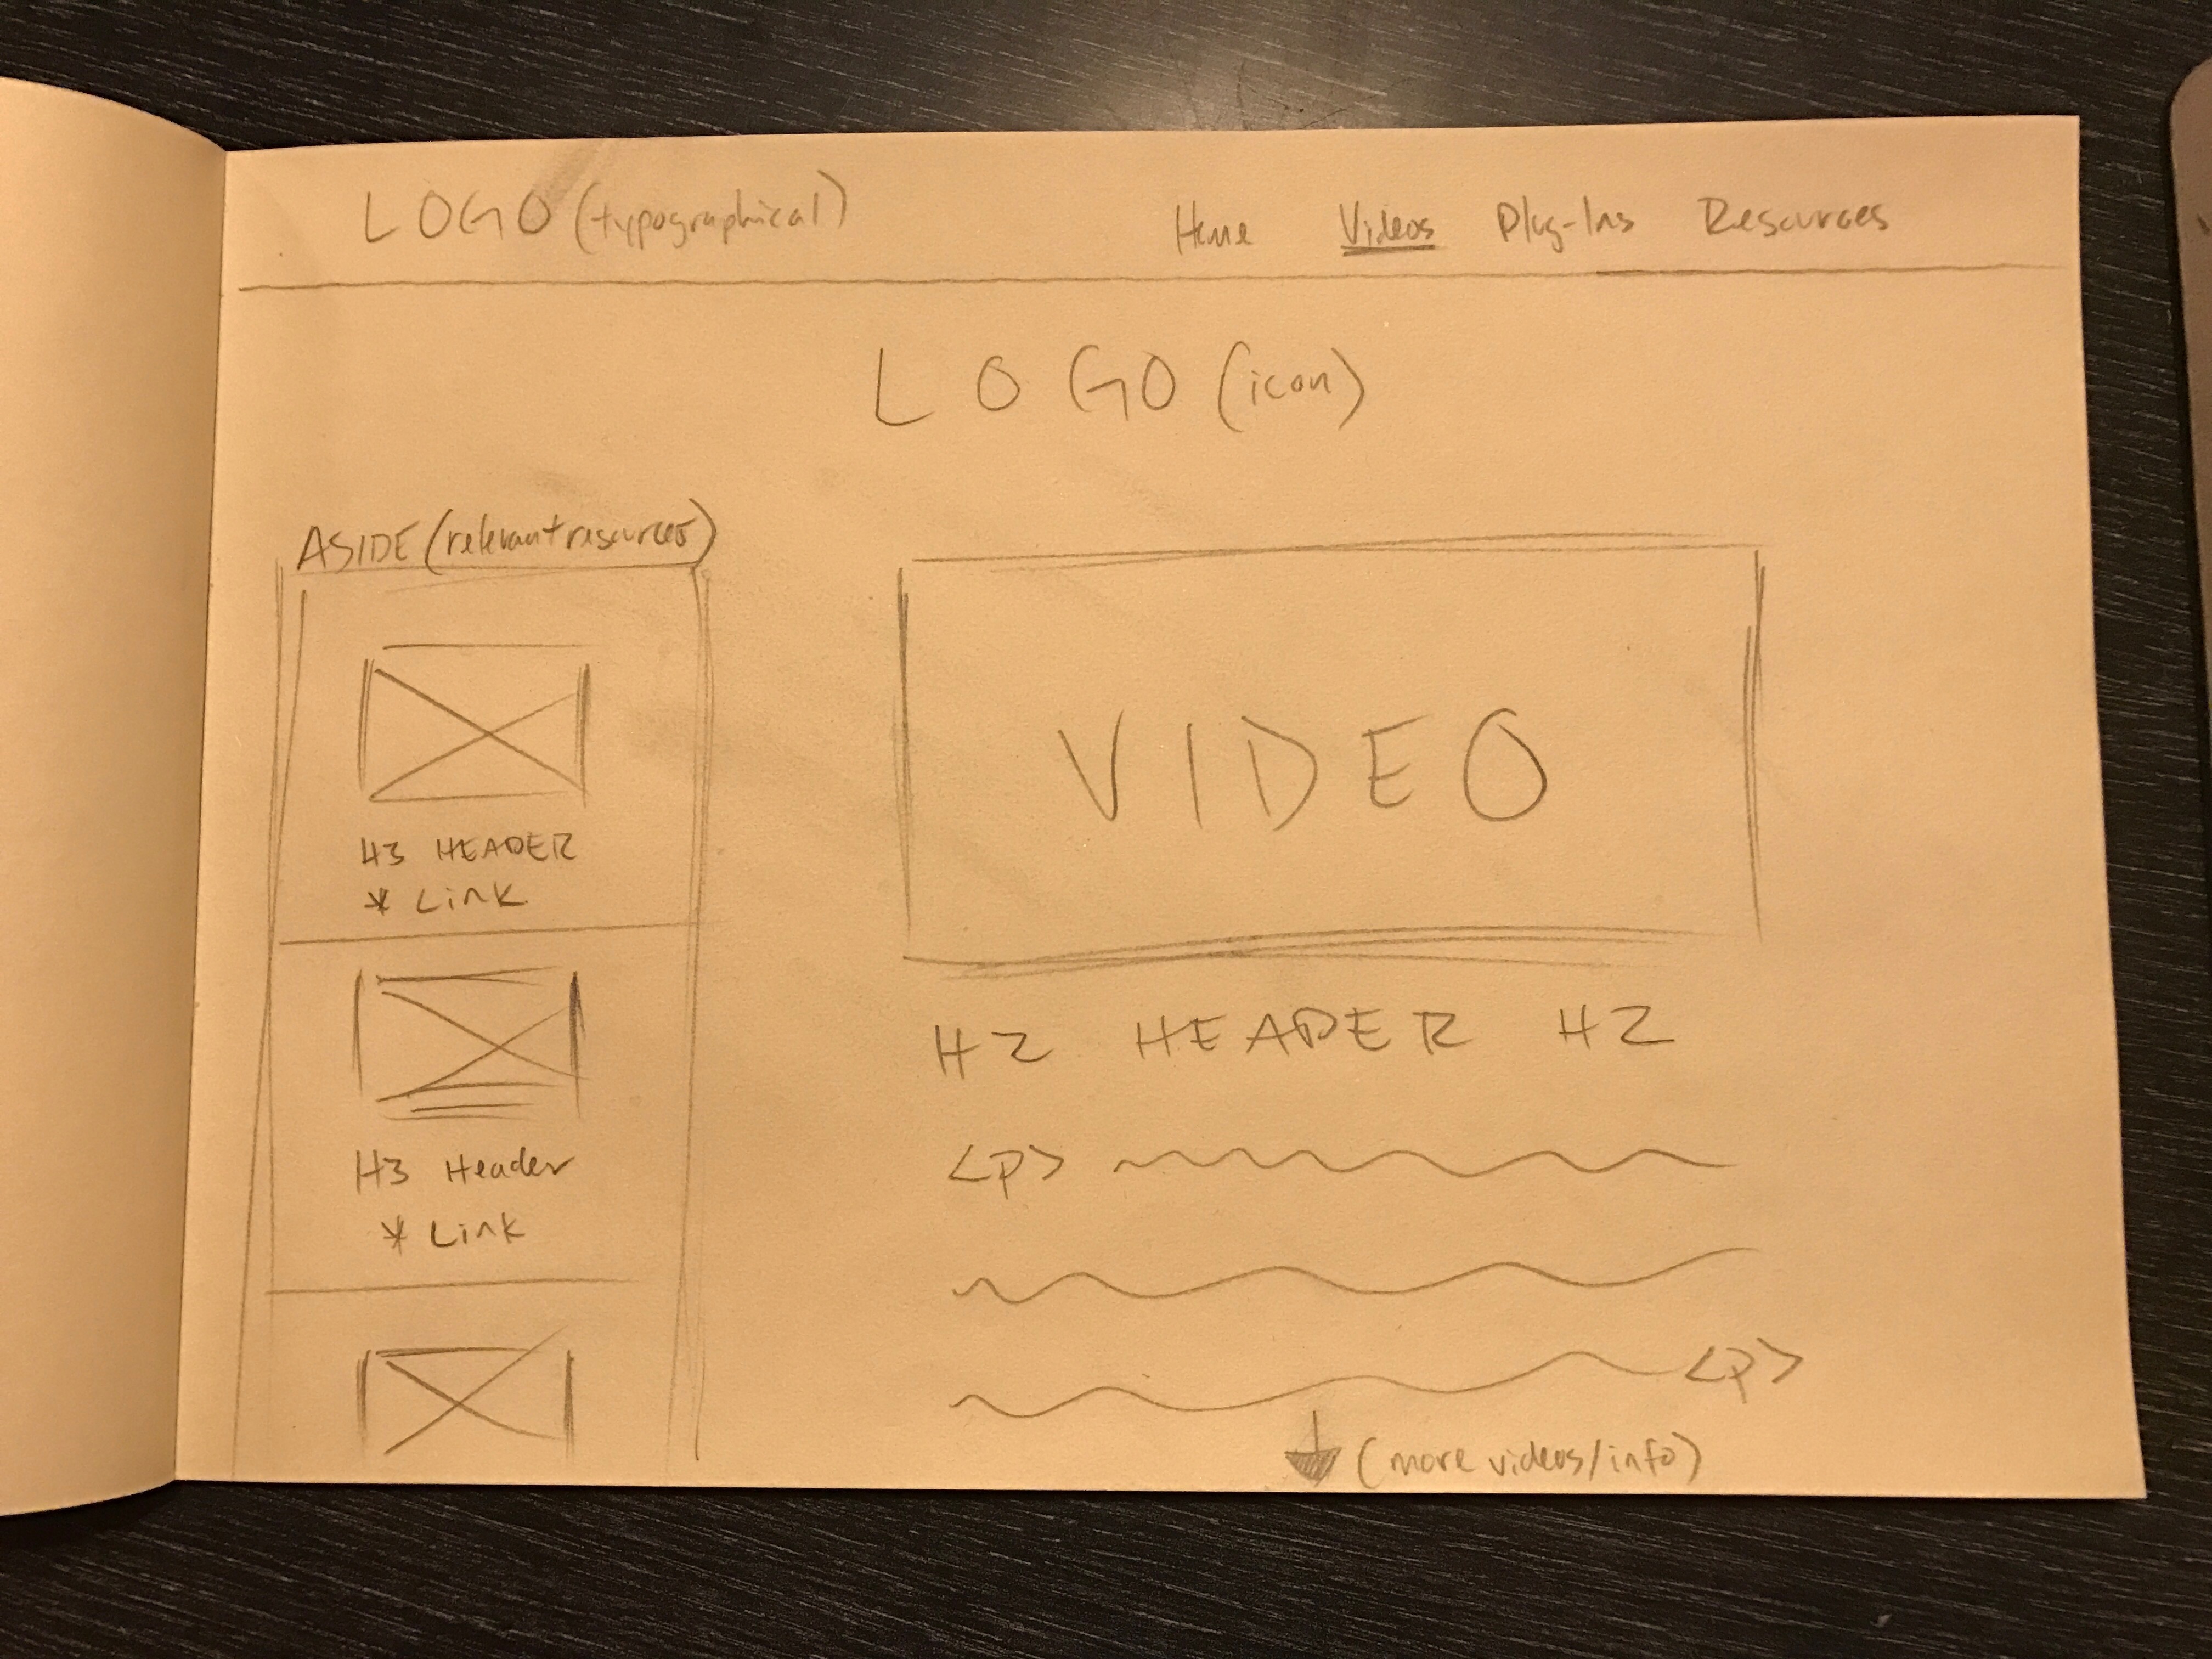 LOGO (typographical) Home Videos Plug-Ins Resources
LOGO (icon)
ASIDE (relevant resources)
H3 HEADER
* Link
H3 Header
* Link
VIDEO
H2 HEADER H2
<p>
<p>
(more videos/info)